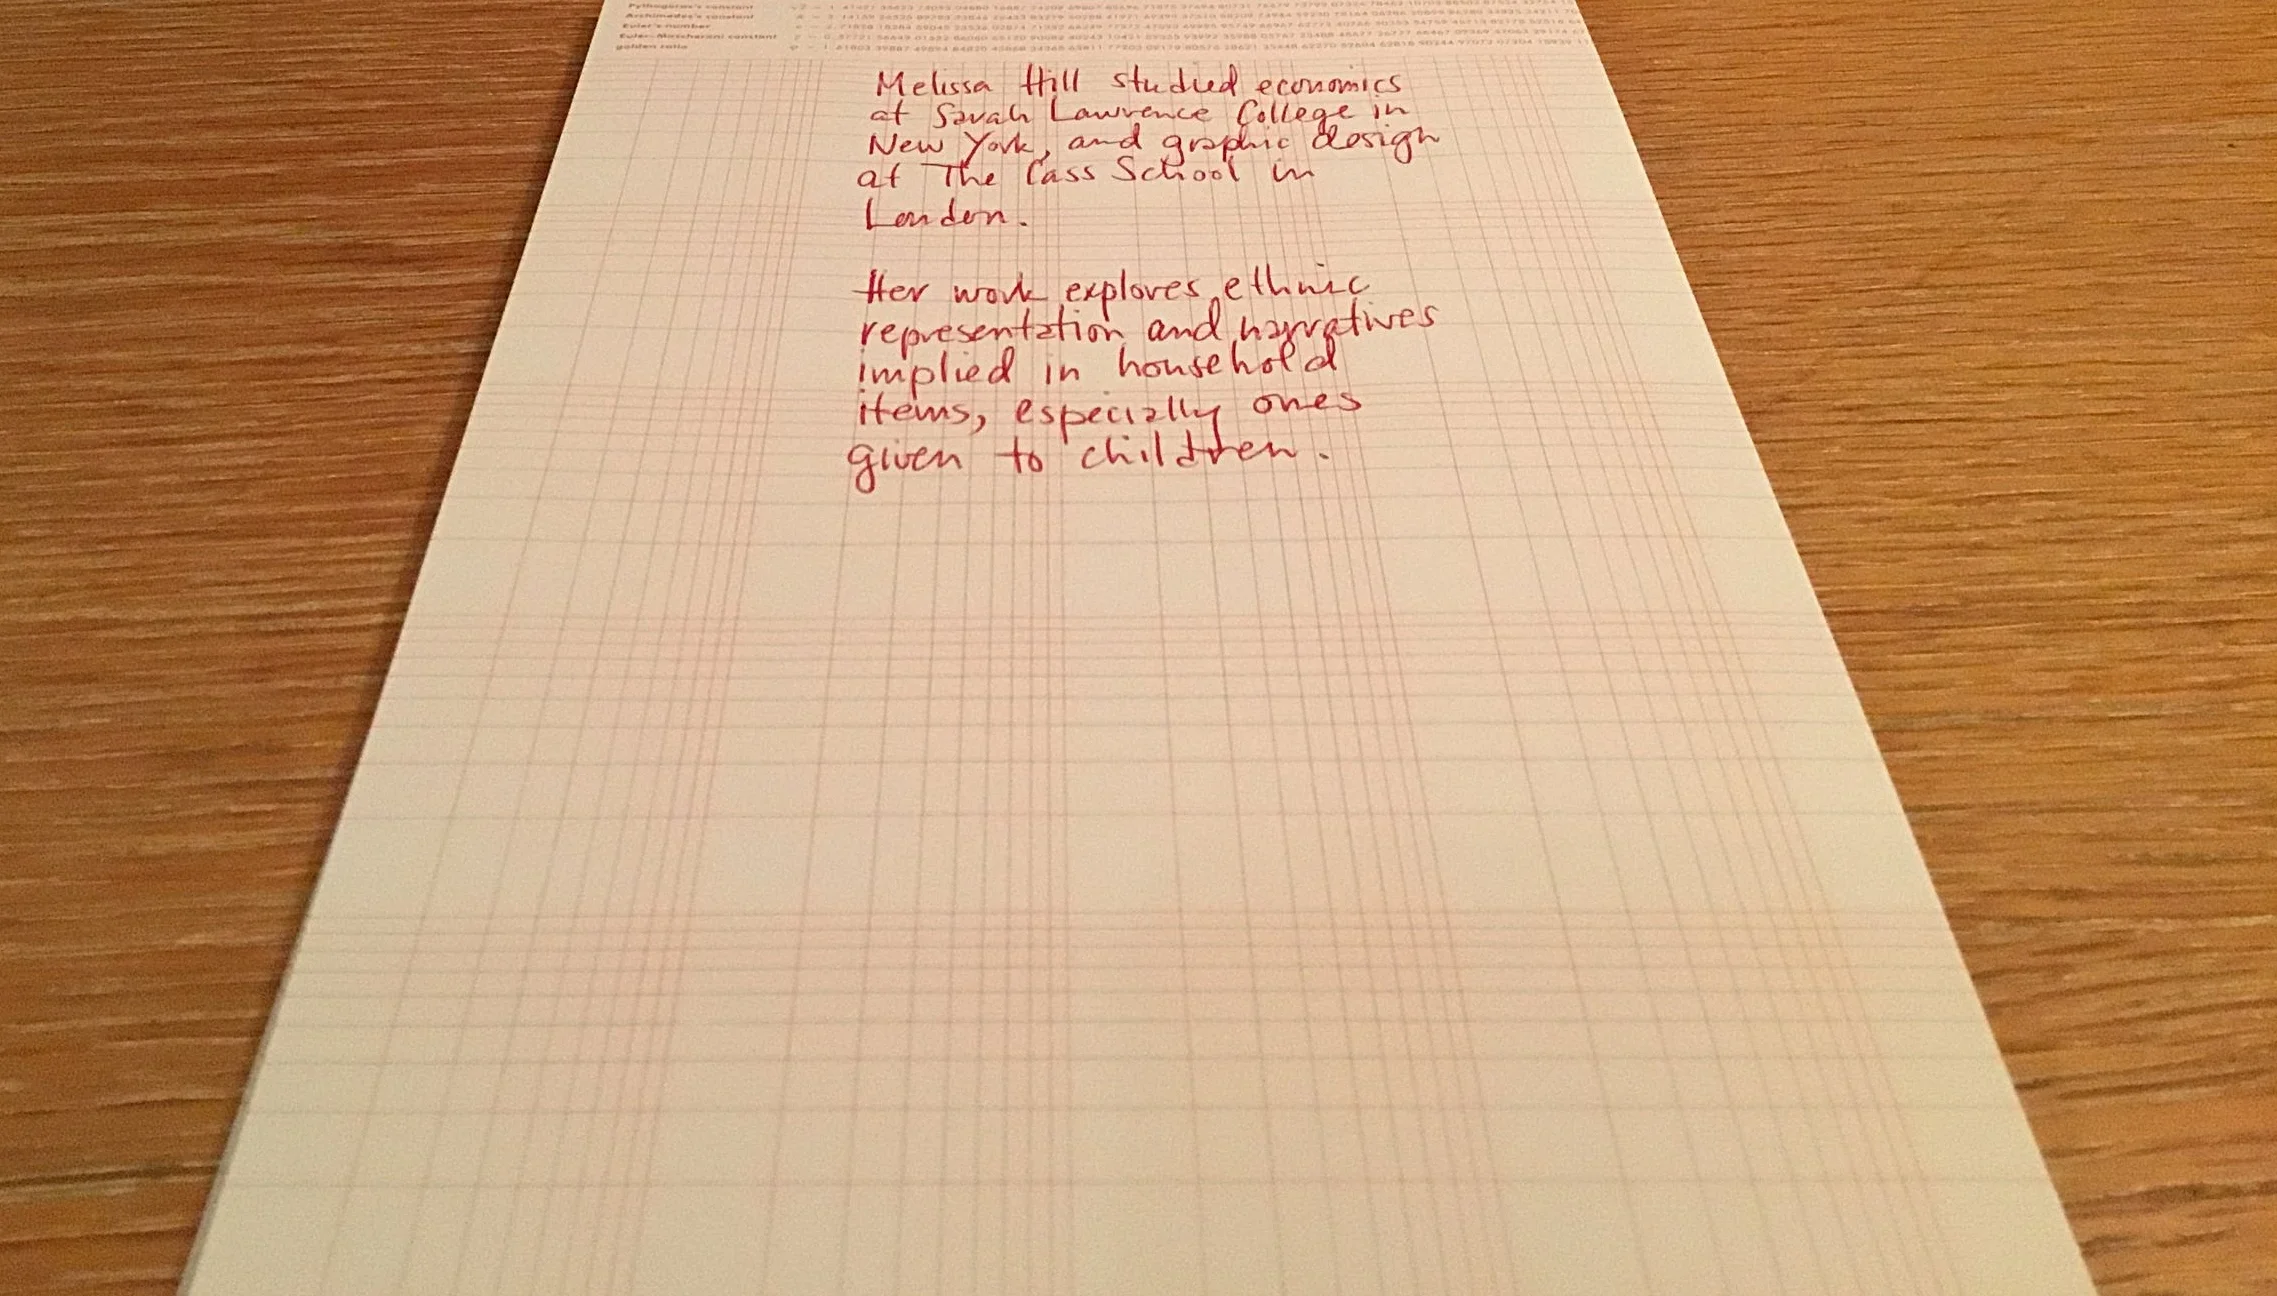 Pythagoras's constant
Archimedes's constant
Euler's number
Euler–Mascheroni constant
golden ratio
Melissa Hill studied economics
at Sarah Lawrence College in
New York, and graphic design
at The Cass School in
London.
Her work explores ethnic
representation and narratives
implied in household
items, especially ones
given to children.